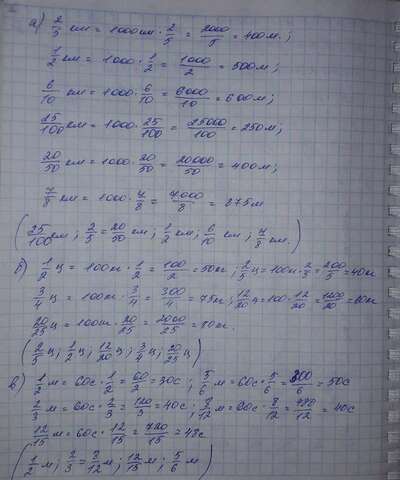 а) 2/5 км = 1000 м · 2/5 = 2000/5 = 400 м.;
1/2 км = 1000 · 1/2 = 1000/2 = 500 м;
6/10 км = 1000 · 6/10 = 6000/10 = 600 м;
25/100 км = 1000 · 25/100 = 25000/100 = 250 м;
20/50 км = 1000 · 20/50 = 20000/50 = 400 м;
7/8 км = 1000 · 7/8 = 7000/8 = 875 м
(25/100 км; 2/5 = 20/50 км; 1/2 км; 6/10 км; 7/8 км.)
б) 1/2 ц = 100 к · 1/2 = 100/2 = 50 к; 2/5 ц = 100 к · 2/5 = 200/5 = 40 к
3/4 ц = 100 к · 3/4 = 300/4 = 75 к; 12/20 ц = 100 · 12/20 = 1200/20 = 60 к
20/25 ц = 100 к · 20/25 = 2000/25 = 80 к.
(2/5 ц; 1/2 ц; 12/20 ц; 3/4 ц; 20/25 ц)
в) 1/2 м = 60 с · 1/2 = 60/2 = 30 с; 5/6 м = 60 с · 5/6 = 300/6 = 50 с
2/3 м = 60 с · 2/3 = 120/3 = 40 с; 8/12 м = 60 с · 8/12 = 480/12 = 40 с
12/15 м = 60 с · 12/15 = 720/15 = 48 с
(1/2 м; 2/3 = 8/12 м; 12/15 м; 5/6 м)